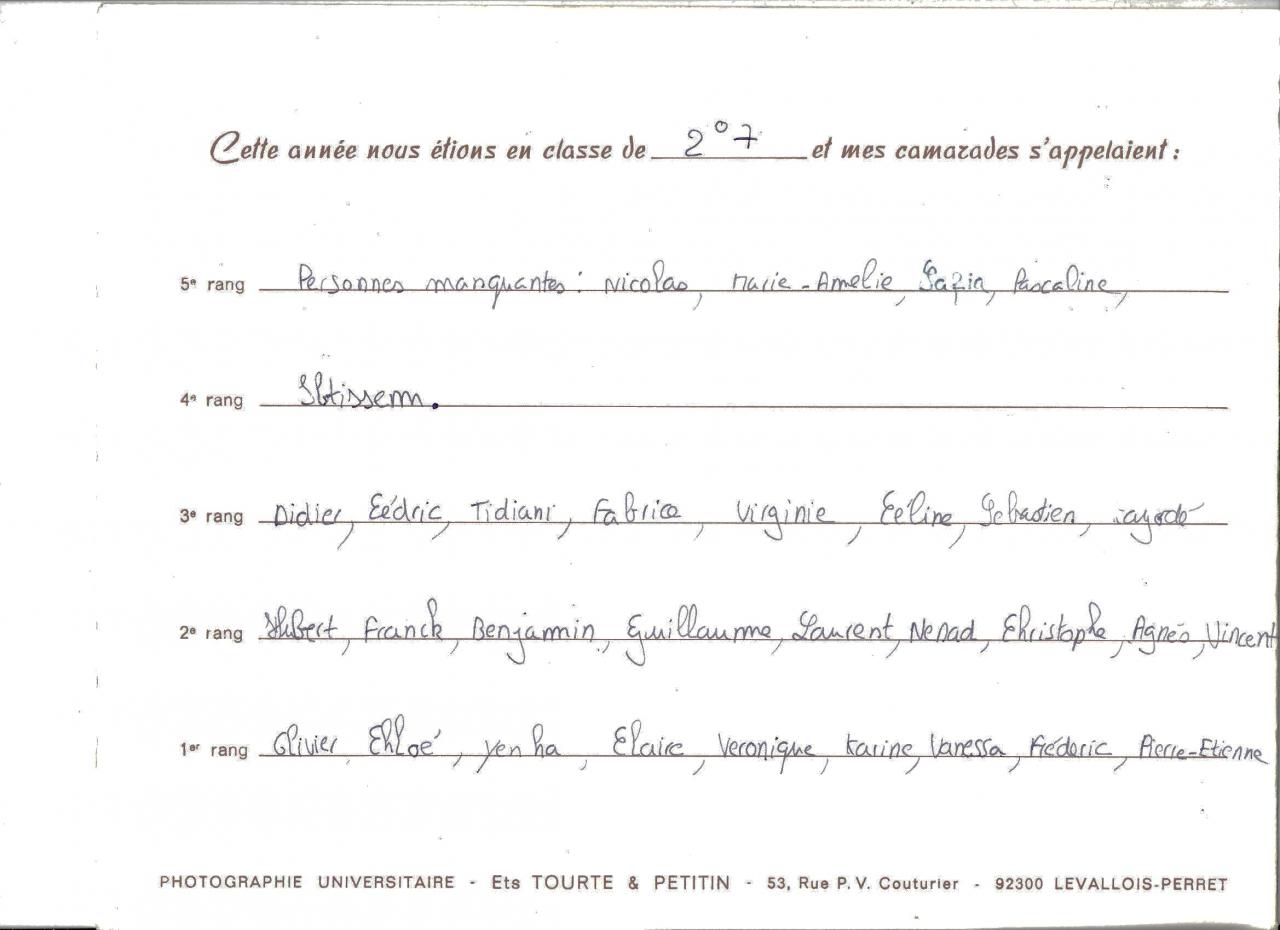 Cette année nous étions en classe de 2°7 et mes camarades s'appelaient :
5e rang Personnes manquantes : Nicolas, Marie-Amelie, Pascaline,
4e rang Ibtissem.
3e rang Didier, Cédric, Tidiani, Fabrice, Virginie, Céline, Sebastien,
2e rang Hubert, Franck, Benjammin, Guillaume, Laurent, Nenad, Christophe, Agnès, Vincent
1er rang Olivier Chloé, yen ha, Claire, Veronique, Karine, Vanessa, Fréderic, Pierre-Etienne
PHOTOGRAPHIE UNIVERSITAIRE - Ets TOURTE & PETITIN - 53, Rue P. V. Couturier - 92300 LEVALLOIS-PERRET